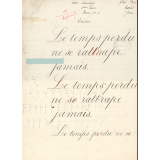 Le temps perdu
ne se rattrape
jamais.
Le temps perdu
ne se rattrape
jamais.
Le temps perdu ne se